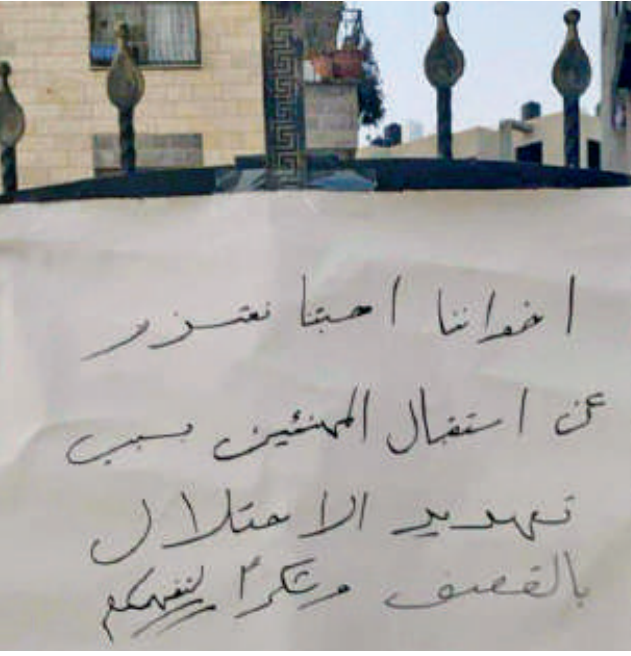 اخواننا احبتنا نعتذر
عن استقبال المهنئين بسبب
تهديد الاحتلال
بالقصف وشكراً لتفهمكم